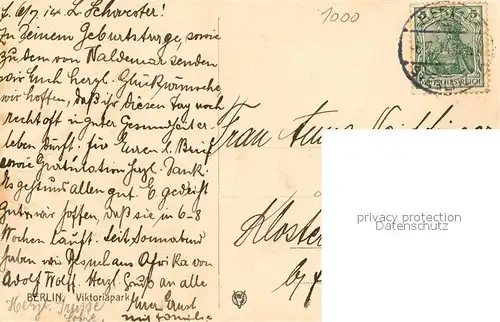 d. 6/7. 14. L. Schwester!
Zu Deinem Geburtstage, sowie
zu dem von Waldemar senden
wir Euch herzl. Glückwünsche
wir hoffen, daß ihr diesen Tag noch
recht oft in guter Gesundheit er-
leben dürft. Für Euren l. Brief
sowie Gratulation herzl. Dank.
Es geht uns allen gut. E gedeiht
gut, wir hoffen, daß sie in 6-8
Wochen läuft. Seit Sonnabend
haben wir Besuch aus Afrika von
Adolf Wolf. Herzl. Gruß an alle
Euer Ernst
mit Familie
Herzl. Grüße
BERLIN. Viktoriapark
1000
BERLIN
DEUTSCHES REICH
Frau Anna
Kloster
privacy protection
Datenschutz